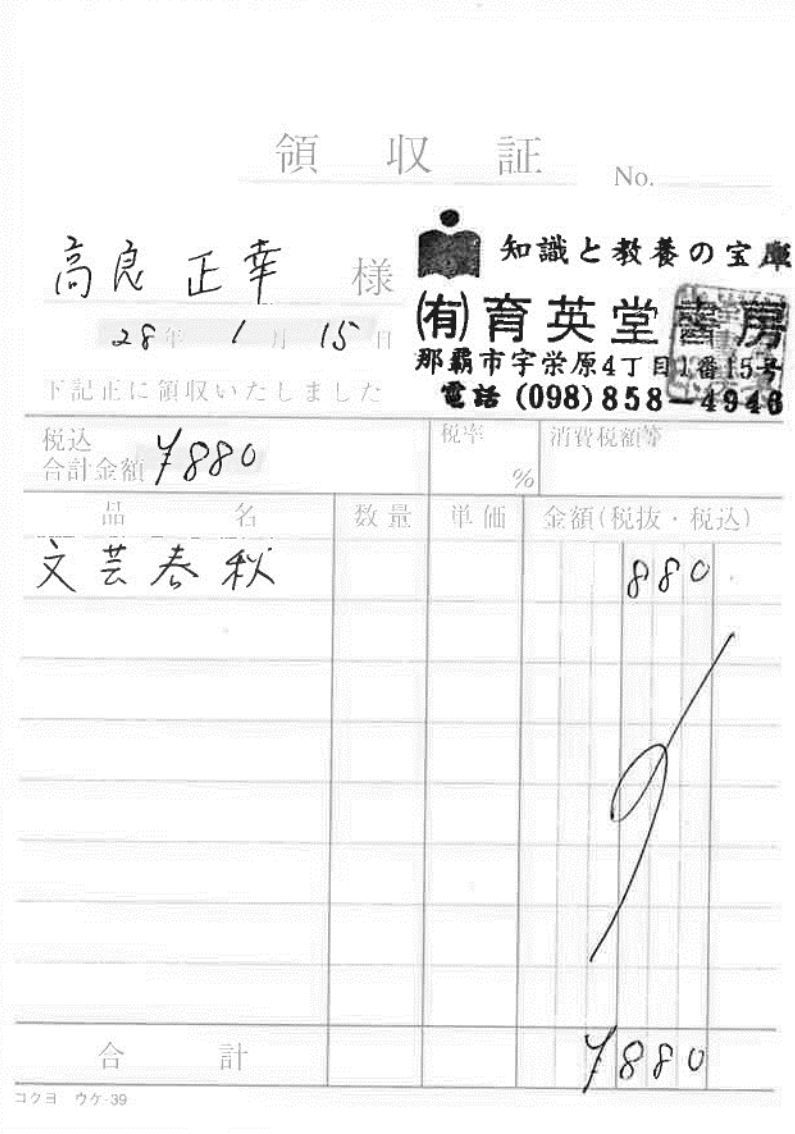 領収証
No.
高良 正幸 様
28年 1月 15日
下記正に領収いたしました
知識と教養の宝庫
(有)育英堂書房
那覇市字栄原4丁目1番15号
電話 (098) 858-4946
税込
合計金額 ¥880
税率
%
消費税額等
品名 数量 単価 金額(税抜・税込)
文芸春秋 880
合計 ¥880
コクヨ ウケ-39